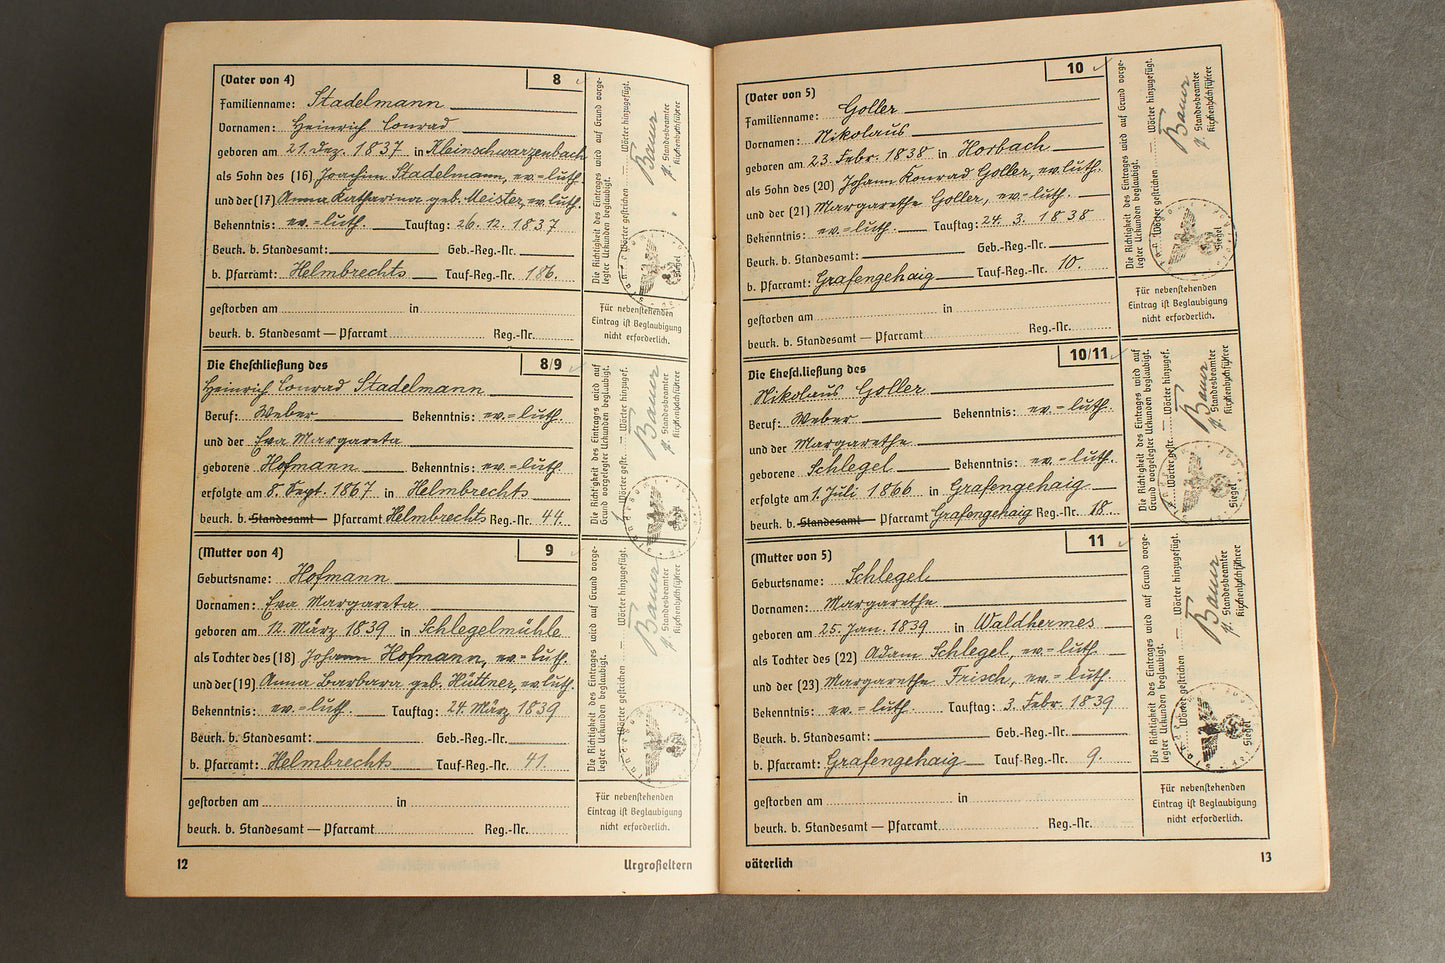 (Vater von 4) 8
Familienname: Stadelmann
Vornamen: Heinrich Conrad
geboren am 21. Dez. 1837 in Kleinschwarzenbach
als Sohn des (16) Joachim Stadelmann, ev.=luth.
und der (17) Anna Katharina geb. Meister, ev. luth.
Bekenntnis: ev.=luth. Tauftag: 26. 12. 1837
Beurk. b. Standesamt: Geb.-Reg.-Nr.
b. Pfarramt: Helmbrechts Tauf-Reg.-Nr. 186.
gestorben am in
beurk. b. Standesamt — Pfarramt Reg.-Nr.
Die Richtigkeit des Eintrages wird auf Grund vorge-
legter Urkunden beglaubigt.
— Wörter gestrichen — Wörter hinzugefügt.
Bauer
Standesbeamter
Kirchenbuchführer
Siegel
Für nebenstehenden
Eintrag ist Beglaubigung
nicht erforderlich.
Die Eheschließung des 8/9
Heinrich Conrad Stadelmann
Beruf: Weber Bekenntnis: ev.=luth.
und der Eva Margareta
geborene Hofmann Bekenntnis: ev.=luth.
erfolgte am 8. Sept. 1867 in Helmbrechts
beurk. b. Standesamt — Pfarramt Helmbrechts Reg.-Nr. 44.
Die Richtigkeit des Eintrages wird auf
Grund vorgelegter Urkunden beglaubigt.
— Wörter gestr. — Wörter hinzugef.
Bauer
Standesbeamter
Kirchenbuchführer
(Mutter von 4) 9
Geburtsname: Hofmann
Vornamen: Eva Margareta
geboren am 12. März 1839 in Schlegelmühle
als Tochter des (18) Johann Hofmann, ev.=luth.
und der (19) Anna Barbara geb. Hüttner, ev. luth.
Bekenntnis: ev.=luth. Tauftag: 24. März 1839
Beurk. b. Standesamt: Geb.-Reg.-Nr.
b. Pfarramt: Helmbrechts Tauf-Reg.-Nr. 41.
gestorben am in
beurk. b. Standesamt — Pfarramt Reg.-Nr.
Die Richtigkeit des Eintrages wird auf Grund vorge-
legter Urkunden beglaubigt.
— Wörter gestrichen — Wörter hinzugefügt.
Bauer
Standesbeamter
Kirchenbuchführer
Für nebenstehenden
Eintrag ist Beglaubigung
nicht erforderlich.
12 Urgroßeltern
(Vater von 5) 10
Familienname: Goller
Vornamen: Nikolaus
geboren am 23. Febr. 1838 in Horbach
als Sohn des (20) Johann Konrad Goller, ev. luth.
und der (21) Margarethe Goller, ev.=luth.
Bekenntnis: ev.=luth. Tauftag: 24. 3. 1838
Beurk. b. Standesamt: Geb.-Reg.-Nr.
b. Pfarramt: Grafengehaig Tauf-Reg.-Nr. 10.
gestorben am in
beurk. b. Standesamt — Pfarramt Reg.-Nr.
Die Richtigkeit des Eintrages wird auf Grund vorge-
legter Urkunden beglaubigt.
— Wörter gestrichen — Wörter hinzugefügt.
Bauer
Standesbeamter
Kirchenbuchführer
Siegel
Für nebenstehenden
Eintrag ist Beglaubigung
nicht erforderlich.
Die Eheschließung des 10/11
Nikolaus Goller
Beruf: Weber Bekenntnis: ev.=luth.
und der Margarethe
geborene Schlegel Bekenntnis: ev.=luth.
erfolgte am 1. Juli 1866 in Grafengehaig
beurk. b. Standesamt — Pfarramt Grafengehaig Reg.-Nr. 18.
Die Richtigkeit des Eintrages wird auf
Grund vorgelegter Urkunden beglaubigt.
— Wörter gestr. — Wörter hinzugef.
Bauer
Standesbeamter
Kirchenbuchführer
Siegel
(Mutter von 5) 11
Geburtsname: Schlegel
Vornamen: Margarethe
geboren am 25. Jan. 1839 in Waldhermes
als Tochter des (22) Adam Schlegel, ev.=luth.
und der (23) Margarethe Frisch, ev.=luth.
Bekenntnis: ev.=luth. Tauftag: 3. Febr. 1839
Beurk. b. Standesamt: Geb.-Reg.-Nr.
b. Pfarramt: Grafengehaig Tauf-Reg.-Nr. 9.
gestorben am in
beurk. b. Standesamt — Pfarramt Reg.-Nr.
Die Richtigkeit des Eintrages wird auf Grund vorge-
legter Urkunden beglaubigt.
— Wörter gestrichen — Wörter hinzugefügt.
Bauer
Standesbeamter
Kirchenbuchführer
Siegel
Für nebenstehenden
Eintrag ist Beglaubigung
nicht erforderlich.
väterlich 13